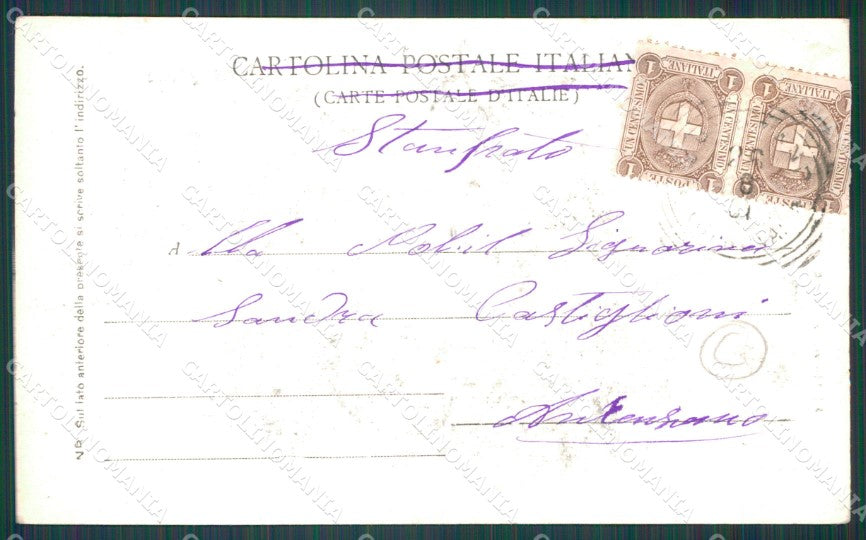 CARTOLINA POSTALE ITALIAN
(CARTE POSTALE D'ITALIE)
Stampato
A lla Nobil Signorina
Sandra Castiglioni
NB. Sul lato anteriore della presente si scrive soltanto l'indirizzo.
POSTE ITALIANE
UN CENTESIMO
1 1 1 1
POSTE ITALIANE
UN CENTESIMO
1 1 1
8
01
C
CARTOLINOMANIA